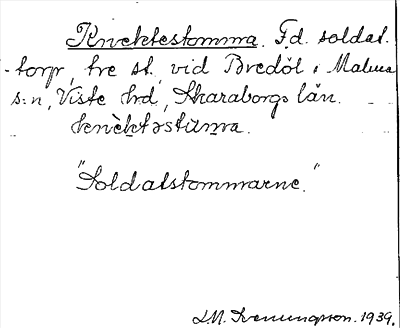 Knektestomma. F.d. soldat-
-torp, tre st. vid Bredöl i Malma
s:n, Viste hrd, Skaraborgs län.
"Soldatstommarne."
L.M. Svenungsson. 1939.